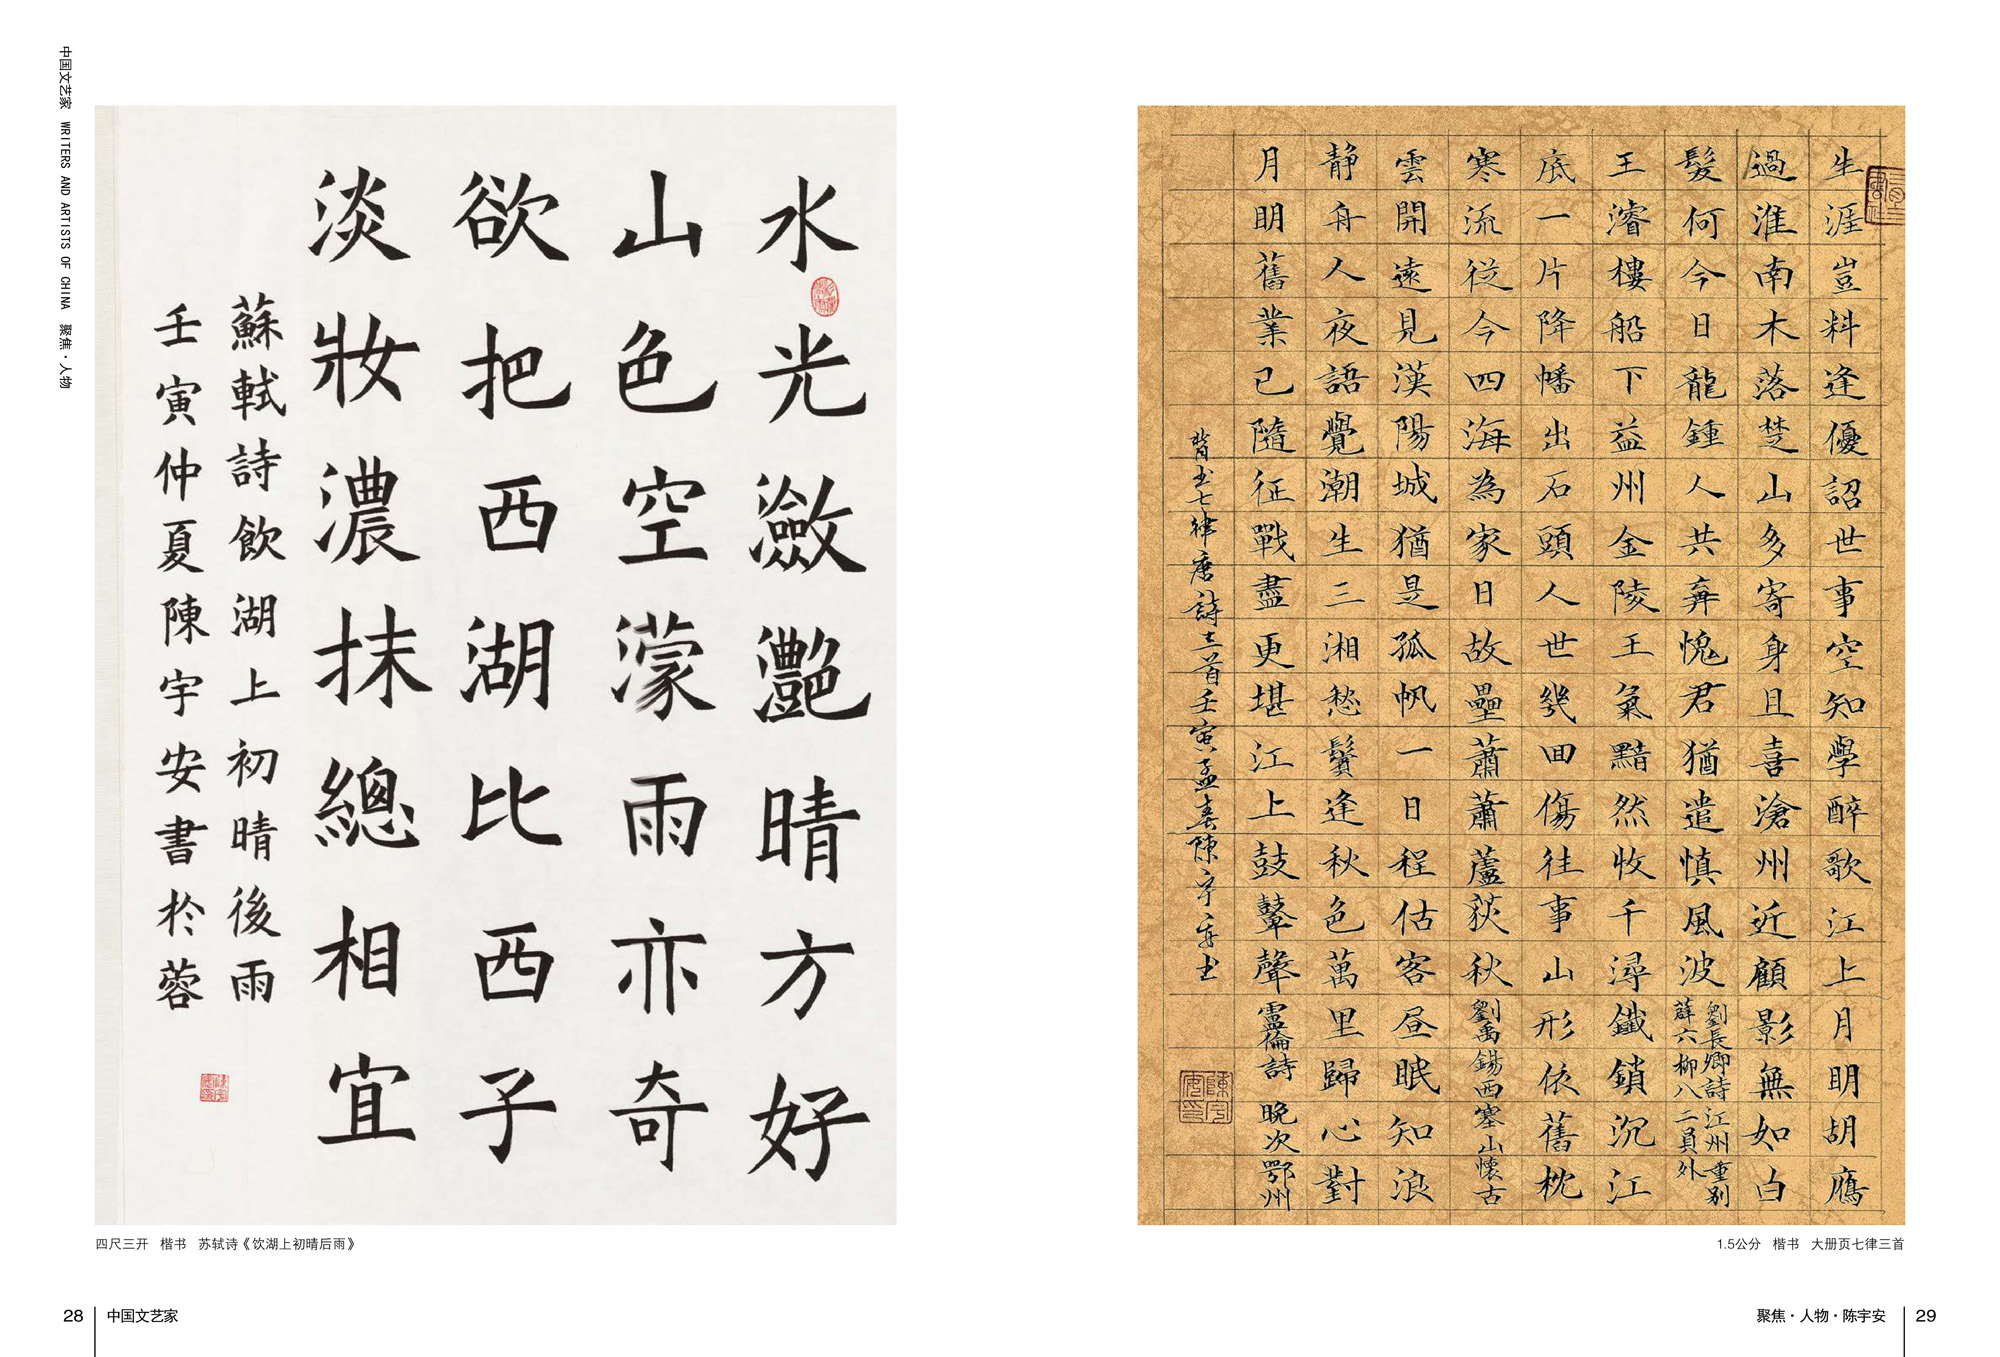 中国文艺家 WRITERS AND ARTISTS OF CHINA 聚焦·人物
水光瀲灧晴方好
山色空濛雨亦奇
欲把西湖比西子
淡妝濃抹總相宜
蘇軾詩飲湖上初晴後雨
壬寅仲夏陳宇安書於蓉
四尺三开 楷书 苏轼诗《饮湖上初晴后雨》
28 中国文艺家
生涯豈料逢優詔世事空知學醉歌江上月明胡鴈
過淮南木落楚山多寄身且喜滄州近顧影無如白
髮何今日龍鍾人共弃愧君猶遣慎風波 劉長卿詩江州重別薛六柳八二員外
王濬樓船下益州金陵王氣黯然收千潯鐵鎖沉江
底一片降幡出石頭人世幾回傷往事山形依舊枕
寒流從今四海為家日故壘蕭蕭蘆荻秋 劉禹錫西塞山懷古
雲開遠見漢陽城猶是孤帆一日程估客昼眠知浪
静舟人夜語覺潮生三湘愁鬢逢秋色萬里歸心對
月明舊業已隨征戰盡更堪江上鼓鼙聲 盧倫詩 晚次鄂州
背书七律唐詩三首壬寅孟春陳宇安书
陳宇安印
1.5公分 楷书 大册页七律三首
聚焦·人物·陈宇安 29